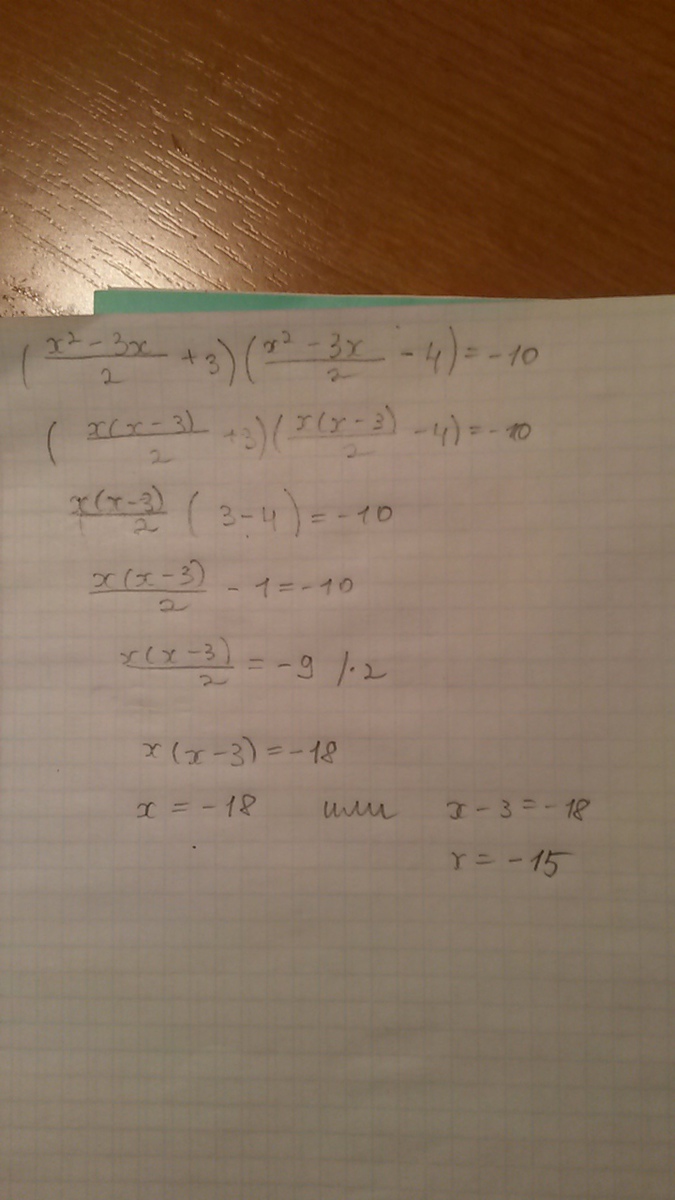 (x² - 3x / 2 + 3)(x² - 3x / 2 - 4) = -10
(x(x-3) / 2 + 3)(x(x-3) / 2 - 4) = -10
x(x-3) / 2 (3-4) = -10
x(x-3) / 2 - 1 = -10
x(x-3) / 2 = -9 /·2
x(x-3) = -18
x = -18 или x - 3 = -18
x = -15